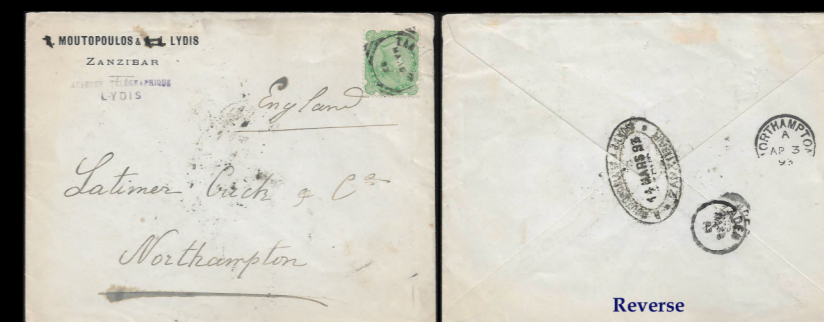 MOUTOPOULOS & LYDIS
ZANZIBAR
TÉLÉGRAPHIQUE
LYDIS
England
Latimer Crick & Co
Northampton
ZANZIBAR
14 MARS 93
NORTHAMPTON
A
AP 3
93
ADEN
Reverse